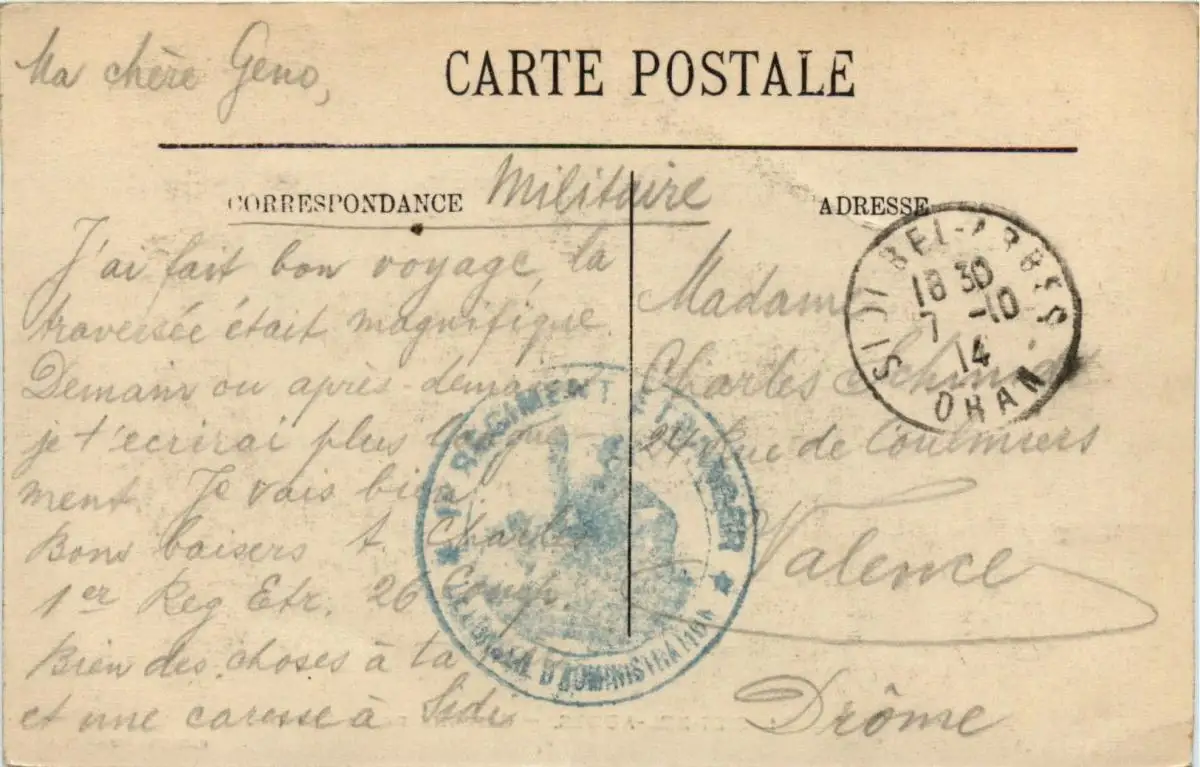 Ma chère Geno,
CARTE POSTALE
CORRESPONDANCE
Militaire
ADRESSE
J'ai fait bon voyage, la
traversée était magnifique.
Demain ou après-demain
je t'ecrirai plus longue-
ment. Je vais bien.
Bons baisers t. Charles
1er Reg Etr. 26 Comp.
Bien des choses à ta
et une caresse à Sidi
Madame
Charles
24 Rue de Coulmiers
Valence
Drôme
SIDI BEL-ABBES
18 30
7 -10
14
ORAN
1er REGIMENT ETRANGER
D'ADMINISTRATION